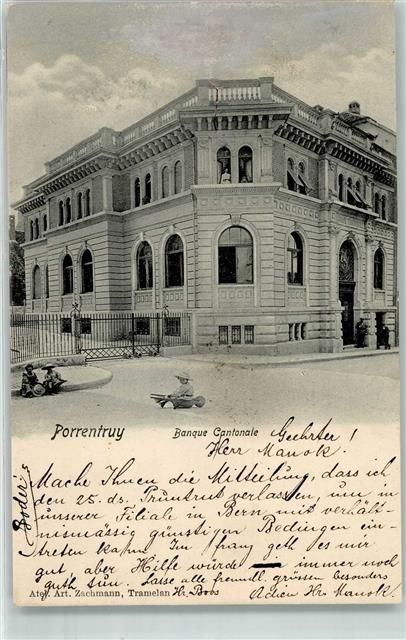 Porrentruy Banque Cantonale Geehrter!
Herr Manok.
Mache Ihnen die Mitteilung, dass ich
den 25. ds. Pruntrut verlassen, um in
unserer Filiale in Bern mit verhält-
nismässig günstigen Bedingen ein-
treten kann. Im franz geth es mir
gut, aber Hilfe würde immer noch
guth tun. Lasse alle freundl. grüssen besonders
Atel. Art. Zachmann, Tramelan Hr. Boos Adieu Hr. Manok!